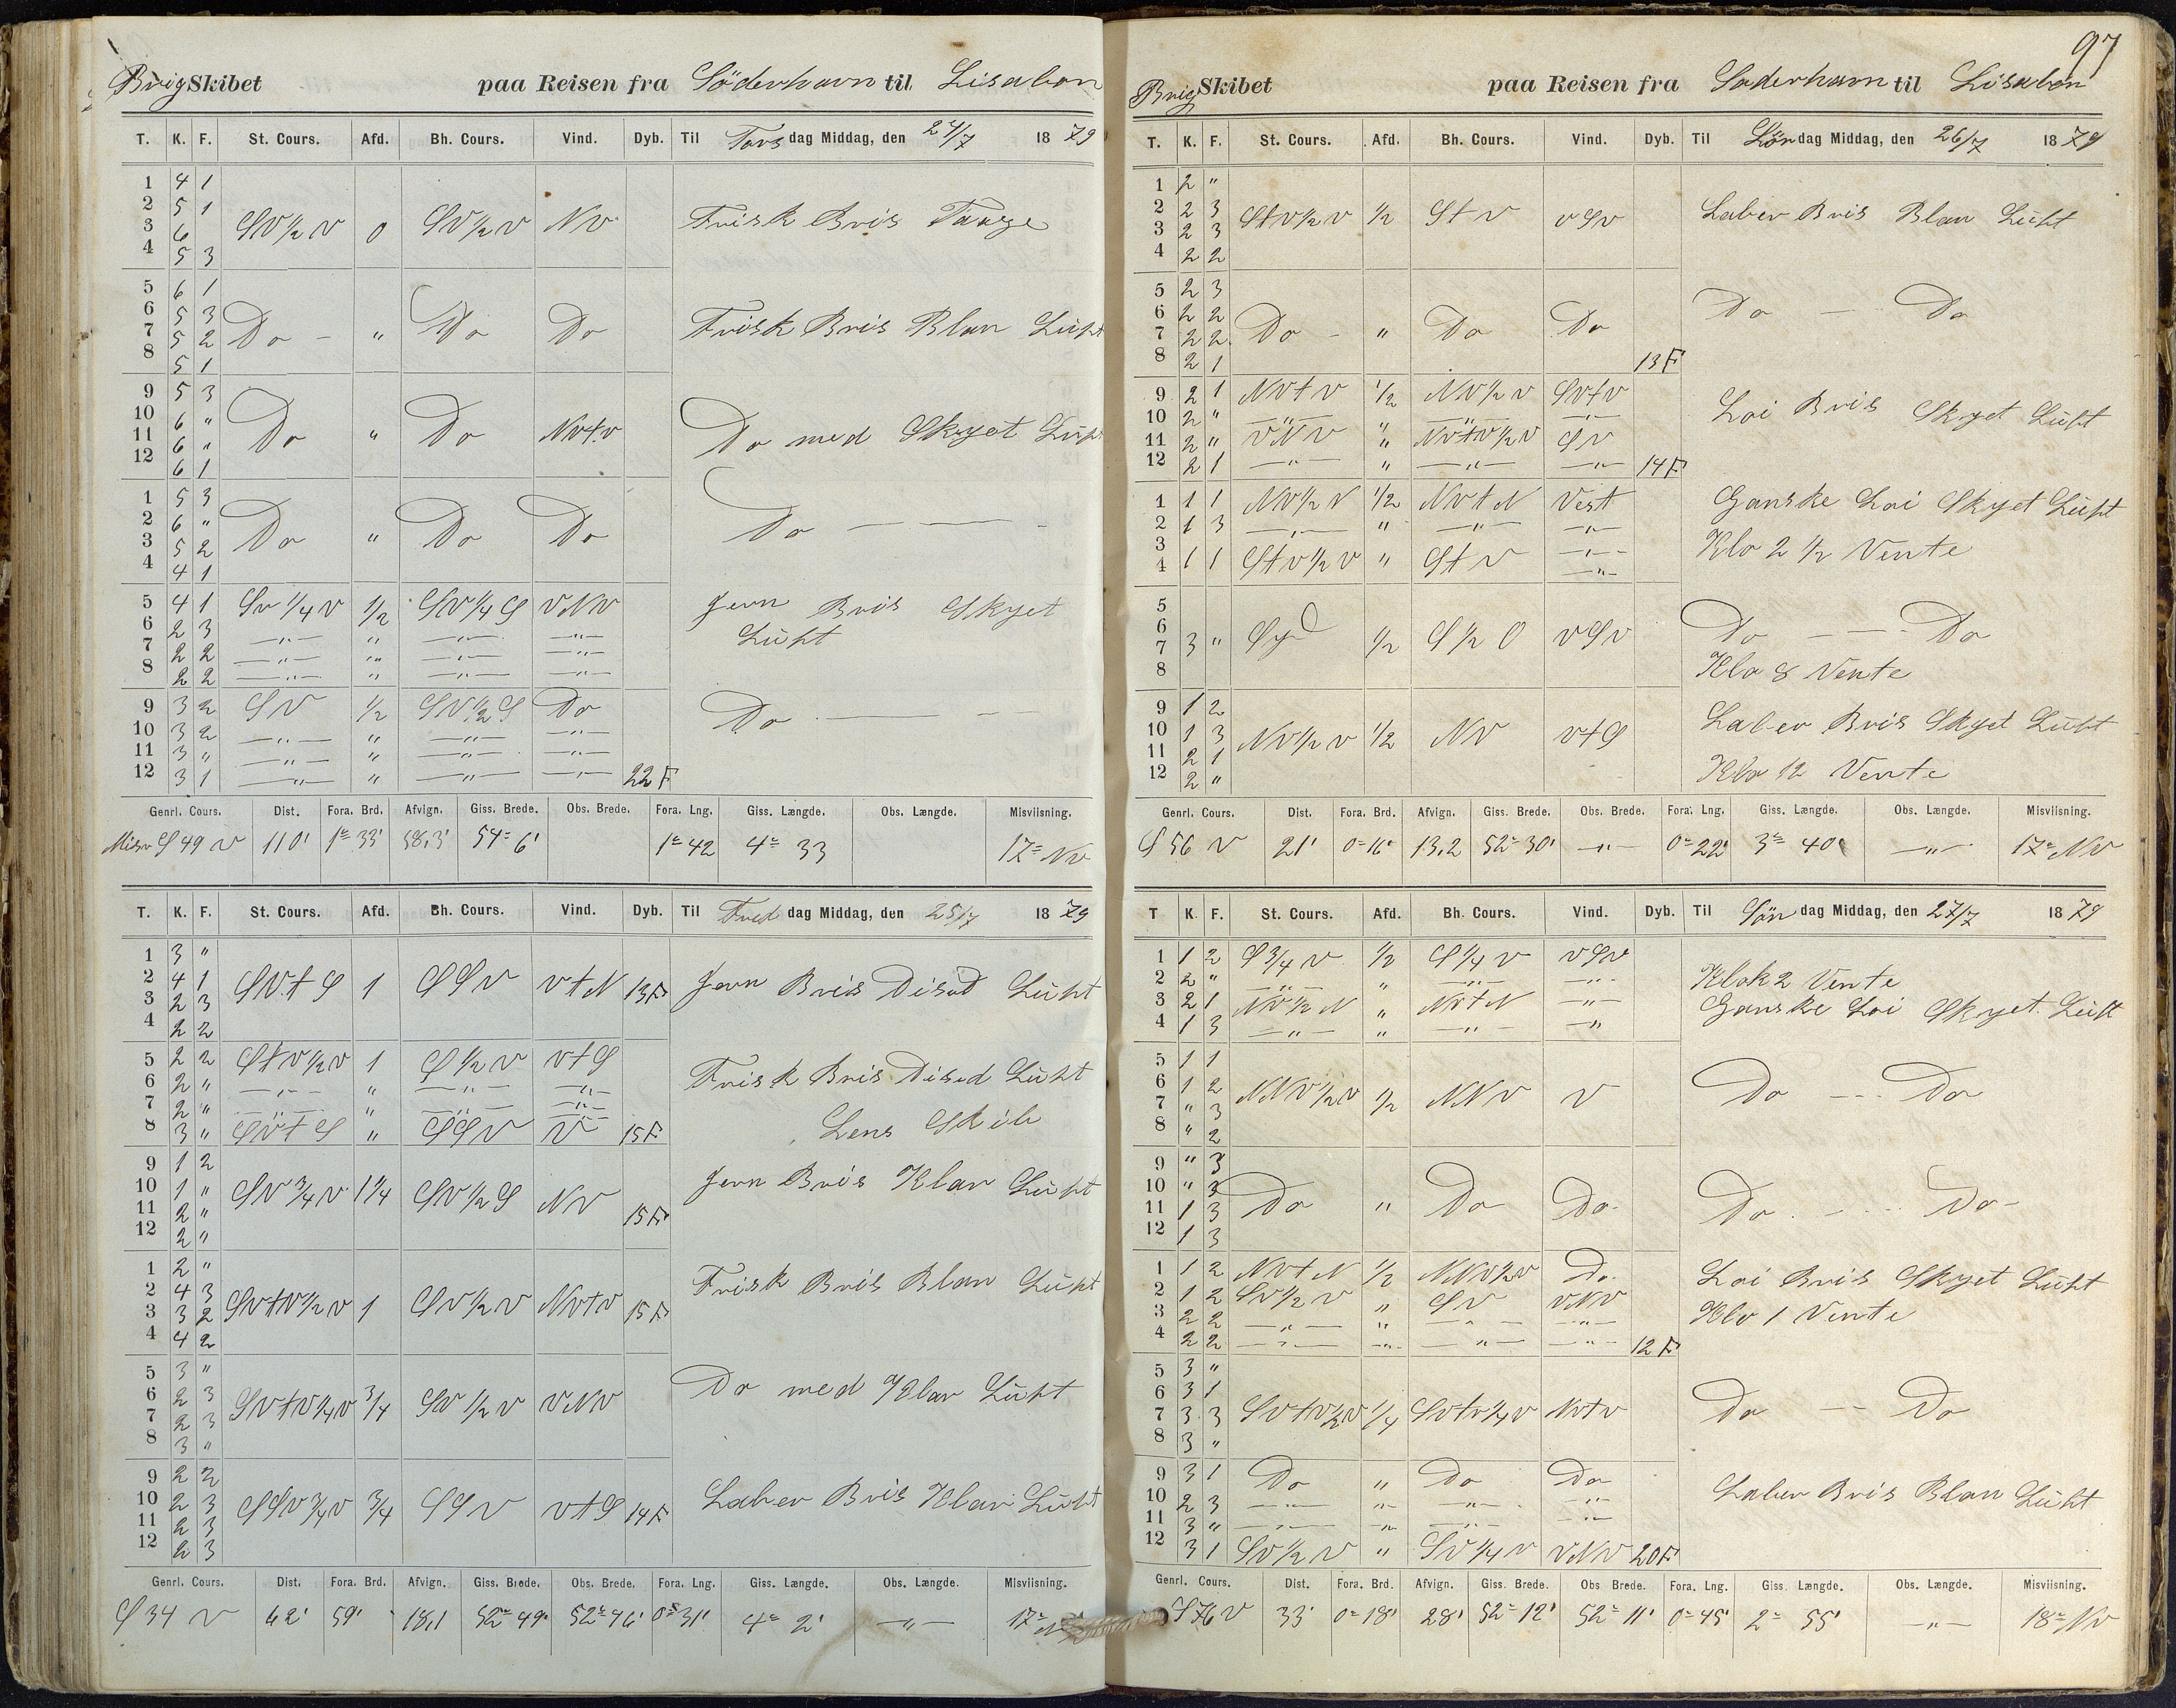 Brig Skibet paa Reisen fra Söderhavn til Lisabon
T. K. F. St. Cours. Afd. Bh. Cours. Vind. Dyb. Til Tors dag Middag, den 24/7 1879
1 4 1
2 5 1
3 6 SV 1/2 V 0 SV 1/2 V NV Frisk Bris Taage
4 5 3
5 6 1
6 5 3
7 5 2 Do - " Do Do Frisk Bris Blan Luft
8 5 1
9 5 3
10 6 "
11 6 " Do " Do NVtV Do med Skyet Luft
12 6 1
1 5 3
2 6 "
3 5 2 Do " Do Do Do — —
4 4 1
5 4 1 SV 1/4 V 1/2 SV 1/4 S VNV Jevn Bris Skyet
6 2 3 —"— " —"— —"— Luft
7 2 2 —"— " —"— —"—
8 2 2 —"— " —"— —"—
9 3 2 SV 1/2 SV 1/2 S Do Do — —
10 3 2 —"— " —"— —"—
11 3 " —"— " —"— —"—
12 3 1 —"— " —"— —"— 22 F
Genrl. Cours. Dist. Fora. Brd. Afvign. Giss. Brede. Obs. Brede. Fora. Lng. Giss. Længde. Obs. Længde. Misviisning.
Misv S 49 V 110' 1° 33' 58,3' 54° 6' 1° 42 4° 33 17° NV
T. K. F. St. Cours. Afd. Bh. Cours. Vind. Dyb. Til Fred dag Middag, den 25/7 1879
1 3 "
2 4 1
3 2 3 SVtS 1 SSV VtN 13F Jevn Bris Disid Luft
4 2 2
5 2 2 StV 1/2 V 1 S 1/2 V VtS Frisk Bris Disid Luft
6 2 " —"— " —"— —"—
7 2 " —"— " —"— —"—
8 3 " SVtS " SSV V 15F Lens Skib
9 1 2
10 1 " SV 3/4 V 1 1/4 SV 1/2 S NV 15F Jevn Bris Klar Luft
11 2 "
12 2 "
1 2 "
2 4 3 Frisk Bris Blan Luft
3 3 2 SVtV 1/2 V 1 SV 1/2 V NVtV 15F
4 4 2
5 3 "
6 2 3 Do med Klar Luft
7 2 3 SVtV 1/4 V 3/4 SV 1/2 V VNV
8 3 "
9 2 2
10 2 3 SSV 3/4 V 3/4 SSV VtS 14F Laber Bris Klar Luft
11 2 3
12 2 3
Genrl. Cours. Dist. Fora. Brd. Afvign. Giss. Brede. Obs. Brede. Fora. Lng. Giss. Længde. Obs. Længde. Misviisning.
S 34 V 62' 59' 18,1 52° 49' 52° 46' 0° 31' 4° 2' —"— 17°
97
Brig Skibet paa Reisen fra Söderhavn til Lisabon
T. K. F. St. Cours. Afd. Bh. Cours. Vind. Dyb. Til Lör dag Middag, den 26/7 1879
1 2 "
2 2 3 StV 1/2 V 1/2 StV VSV Laber Bris Blan Luft
3 2 3
4 2 2
5 2 3
6 2 2 Do — Do
7 2 2 Do - " Do Do
8 2 1 13F
9 2 1 NVtV 1/2 NV 1/2 V SVtV
10 2 " —"— " —"— —"— Loi Bris Skyet Luft
11 2 " VNV " NVtV 1/2 V SV
12 2 1 —"— " —"— —"— 14F
1 1 1 NV 1/2 N 1/2 NVtN Vest Ganske Loi Skyet Luft
2 1 3 —"— " —"— —"—
3 —"— Klo 2 1/2 Vente
4 1 1 StV 1/2 V " StV —"—
5
6
7 3 " Syd 1/2 S 1/2 O VSV Do — — Do
8 Klo 8 Vente
9 1 2
10 1 3 Laber Bris Skyet Luft
11 2 1 NV 1/2 V 1/2 NV VtS
12 2 " Klo 12 Vente
Genrl. Cours. Dist. Fora. Brd. Afvign. Giss. Brede. Obs. Brede. Fora. Lng. Giss. Længde. Obs. Længde. Misviisning.
S 56 V 21' 0° 16' 13,2 52° 30' —"— 0° 22' 3° 40' —"— 17° NV
T K. F. St. Cours. Afd. Bh. Cours. Vind. Dyb. Til Sön dag Middag, den 27/7 1879
1 1 2 S 3/4 V 1/2 S 1/4 V VSV
2 2 " —"— " —"— —"— Klok 2 Vente
3 2 1 NV 1/2 N " NVtN —"— Ganske Loi Skyet Luft
4 1 3 —"— " —"— —"
5 1 1
6 1 2 NNV 1/2 V 1/2 NNV V Do - - - Do
7 " 3
8 " 2
9 " 3
10 " 3
11 1 3 Do " Do Do. Do - - - Do -
12 1 3
1 1 2 NVtN 1/2 NNV 1/2 V Do. Loi Bris Skyet Luft
2 1 2 SV 1/2 V " SV VNV Klo 1 Vente
3 2 2 —"— " —"— —"—
4 2 2 —"— " —"— —"— 12 F
5 3 "
6 3 1
7 3 3 SVtV 1/2 V 1/4 SVtV 1/4 V NVtV Do — Do
8 3 "
9 3 1 Do " Do Do
10 2 3 —"— " —"— —"— Laber Bris Blan Luft
11 3 " —"— " —"— —"—
12 3 1 SV 1/2 V " SV 1/4 V VNV 20F
Genrl. Cours. Dist. Fora. Brd. Afvign. Giss. Brede. Obs. Brede. Fora. Lng. Giss. Længde. Obs. Længde. Misviisning.
S 76 V 33' 0° 18' 28' 52° 12' 52° 11' 0° 45' 2° 55' —"— 18° NV